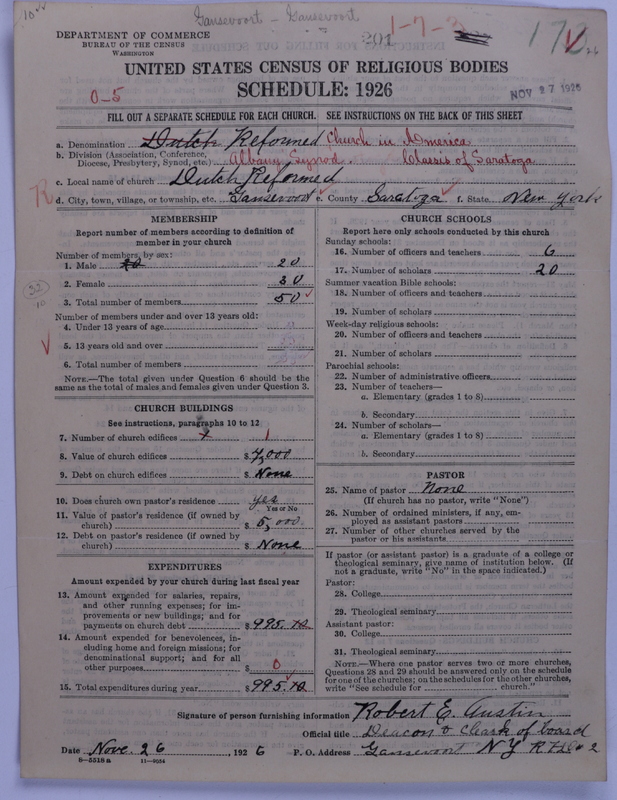 Gansevoort - Gansevoort
201 1-7-3
DEPARTMENT OF COMMERCE
BUREAU OF THE CENSUS
WASHINGTON
NOV 27 1926
UNITED STATES CENSUS OF RELIGIOUS BODIES
SCHEDULE: 1926
0-5
FILL OUT A SEPARATE SCHEDULE FOR EACH CHURCH. SEE INSTRUCTIONS ON THE BACK OF THIS SHEET
a. Denomination Dutch Reformed Church in America
b. Division (Association, Conference, Diocese, Presbytery, Synod, etc.) Albany Synod Classis of Saratoga
c. Local name of church Dutch Reformed
R
d. City, town, village, or township, etc. Gansevoort e. County Saratoga f. State New York
MEMBERSHIP
Report number of members according to definition of
member in your church
Number of members, by sex:
1. Male 20 20
2. Female 30
3. Total number of members 50
Number of members under and over 13 years old:
4. Under 13 years of age
5. 13 years old and over
6. Total number of members
NOTE.—The total given under Question 6 should be the
same as the total of males and females given under Question 3.
CHURCH BUILDINGS
See instructions, paragraphs 10 to 12
7. Number of church edifices 1
8. Value of church edifices $ 7,000
9. Debt on church edifices $ None
10. Does church own pastor's residence yes
Yes or No
11. Value of pastor's residence (if owned by
church) $ 5,000
12. Debt on pastor's residence (if owned by
church) $ None
EXPENDITURES
Amount expended by your church during last fiscal year
13. Amount expended for salaries, repairs,
and other running expenses; for im-
provements or new buildings; and for
payments on church debt $ 995.70
14. Amount expended for benevolences, in-
cluding home and foreign missions; for
denominational support; and for all
other purposes $ 0
15. Total expenditures during year $ 995.70
CHURCH SCHOOLS
Report here only schools conducted by this church
Sunday schools:
16. Number of officers and teachers 6
17. Number of scholars 20
Summer vacation Bible schools:
18. Number of officers and teachers
19. Number of scholars
Week-day religious schools:
20. Number of officers and teachers
21. Number of scholars
Parochial schools:
22. Number of administrative officers
23. Number of teachers—
a. Elementary (grades 1 to 8)
b. Secondary
24. Number of scholars—
a. Elementary (grades 1 to 8)
b. Secondary
PASTOR
25. Name of pastor None
(If church has no pastor, write "None")
26. Number of ordained ministers, if any, em-
ployed as assistant pastors
27. Number of other churches served by the
pastor or his assistants
If pastor (or assistant pastor) is a graduate of a college or
theological seminary, give name of institution below. (If
not a graduate, write "No" in the space indicated.)
Pastor:
28. College
29. Theological seminary
Assistant pastor:
30. College
31. Theological seminary
NOTE.—Where one pastor serves two or more churches,
Questions 28 and 29 should be answered only on the schedule
for one of the churches; on the schedules for the other churches,
write "See schedule for church."
Signature of person furnishing information Robert E. Austin
Official title Deacon & Clerk of board
Date Nov. 26 1926 P. O. Address Gansevoort N Y R F D # 2
8—5518 a 11—9084